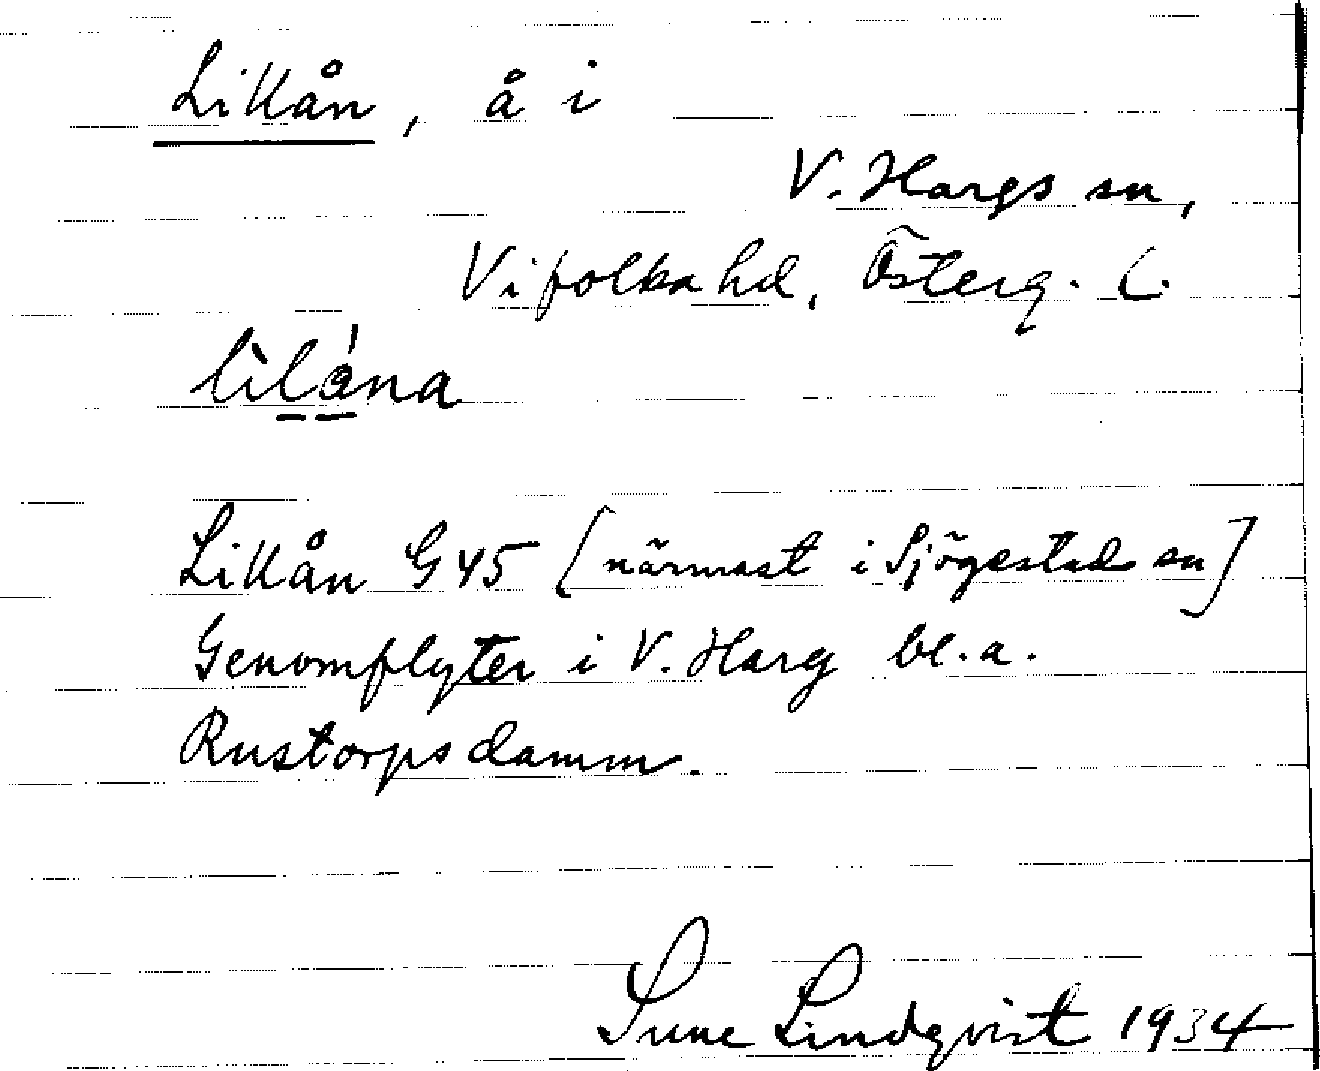 Lillån, å i
V. Hargs sn,
Vifolka hd, Österg. L.
lìlǻna
Lillån G 45 [närmast i Sjögestad sn]
Genomflyter i V. Harg bl.a.
Rustorpsdamm.
Sune Lindqvist 1934